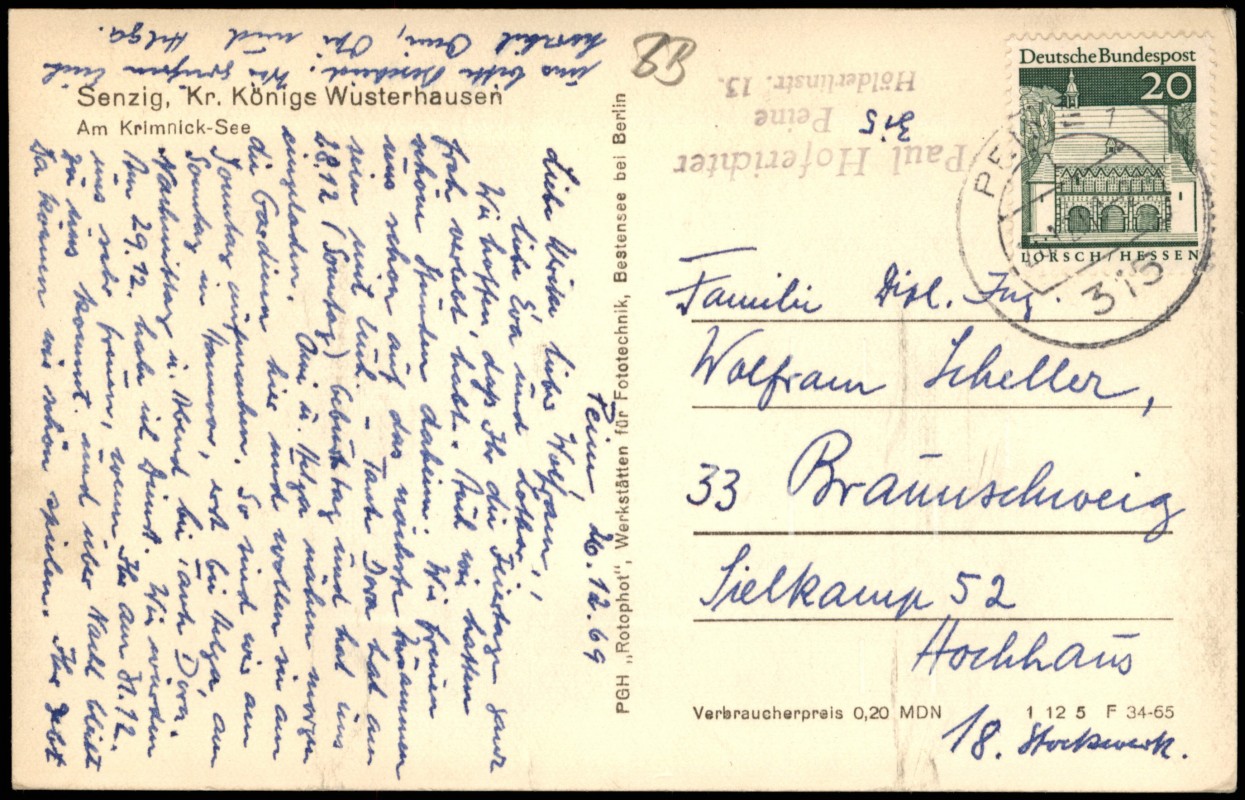 Senzig, Kr. Königs Wusterhausen
Am Krimnick-See
Peine, 26.12.69
Liebe Ursula, lieber Wolfram,
liebe Eva und Lothar,
Wir hoffen, daß Ihr die Feiertage ganz
froh verlebt habt. Auch wir hatten
schöne Stunden daheim. Wir freuen
uns schon auf das nächste Zusammen
sein mit Euch – Tante Dora hat am
28.12 (Sonntag) Geburtstag und hat uns
eingeladen. Omi u. Helga nähen morgen
die Gardinen hier und wollen sie am
Sonntag aufmachen. So sind wir am
Sonntag in Hannover, erst bei Helga, am
Nachmittag u. Abend bei Tante Dora.
Am 29.12. habe ich Dienst. Wir würden
uns sehr freuen, wenn Ihr am 31.12.
zu uns kommt und über Nacht bleibt
Da können wir schön spielen. Ihr gebt
uns bitte Bescheid. Wir grüßen Euch
herzlich Omi, Opi und Helga.
PGH „Rotophot", Werkstätten für Fototechnik, Bestensee bei Berlin
BB
Paul Hoferichter
315 Peine
Hölderlinstr. 13.
Deutsche Bundespost
20
LORSCH/HESSEN
315
Familie Dipl. Ing.
Wolfram Scheller,
33 Braunschweig
Sielkamp 52
Hochhaus
18. Stockwerk.
Verbraucherpreis 0,20 MDN 1 12 5 F 34-65